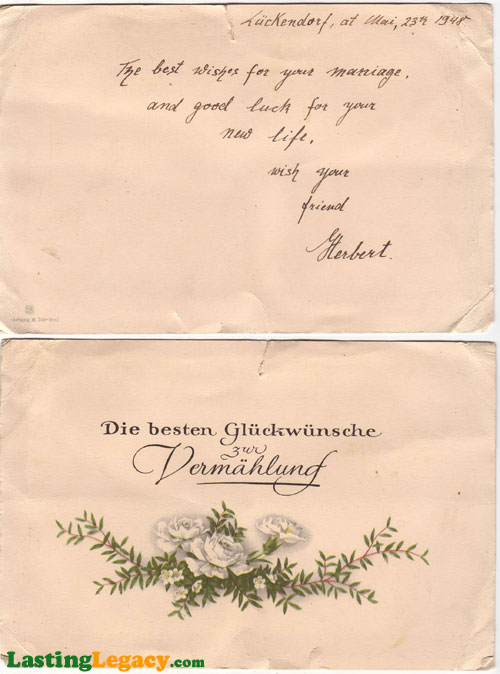 Lückendorf, at Mai, 23th 1948
The best wishes for your marriage,
and good luck for your
new life,
wish your
friend
Herbert.
Die besten Glückwünsche
zur
Vermählung
LastingLegacy.com